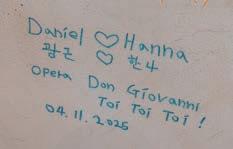 Daniel ♡ Hanna
광근 ♡ 한나
Opera Don Giovanni
Toi Toi Toi !
04.11.2025